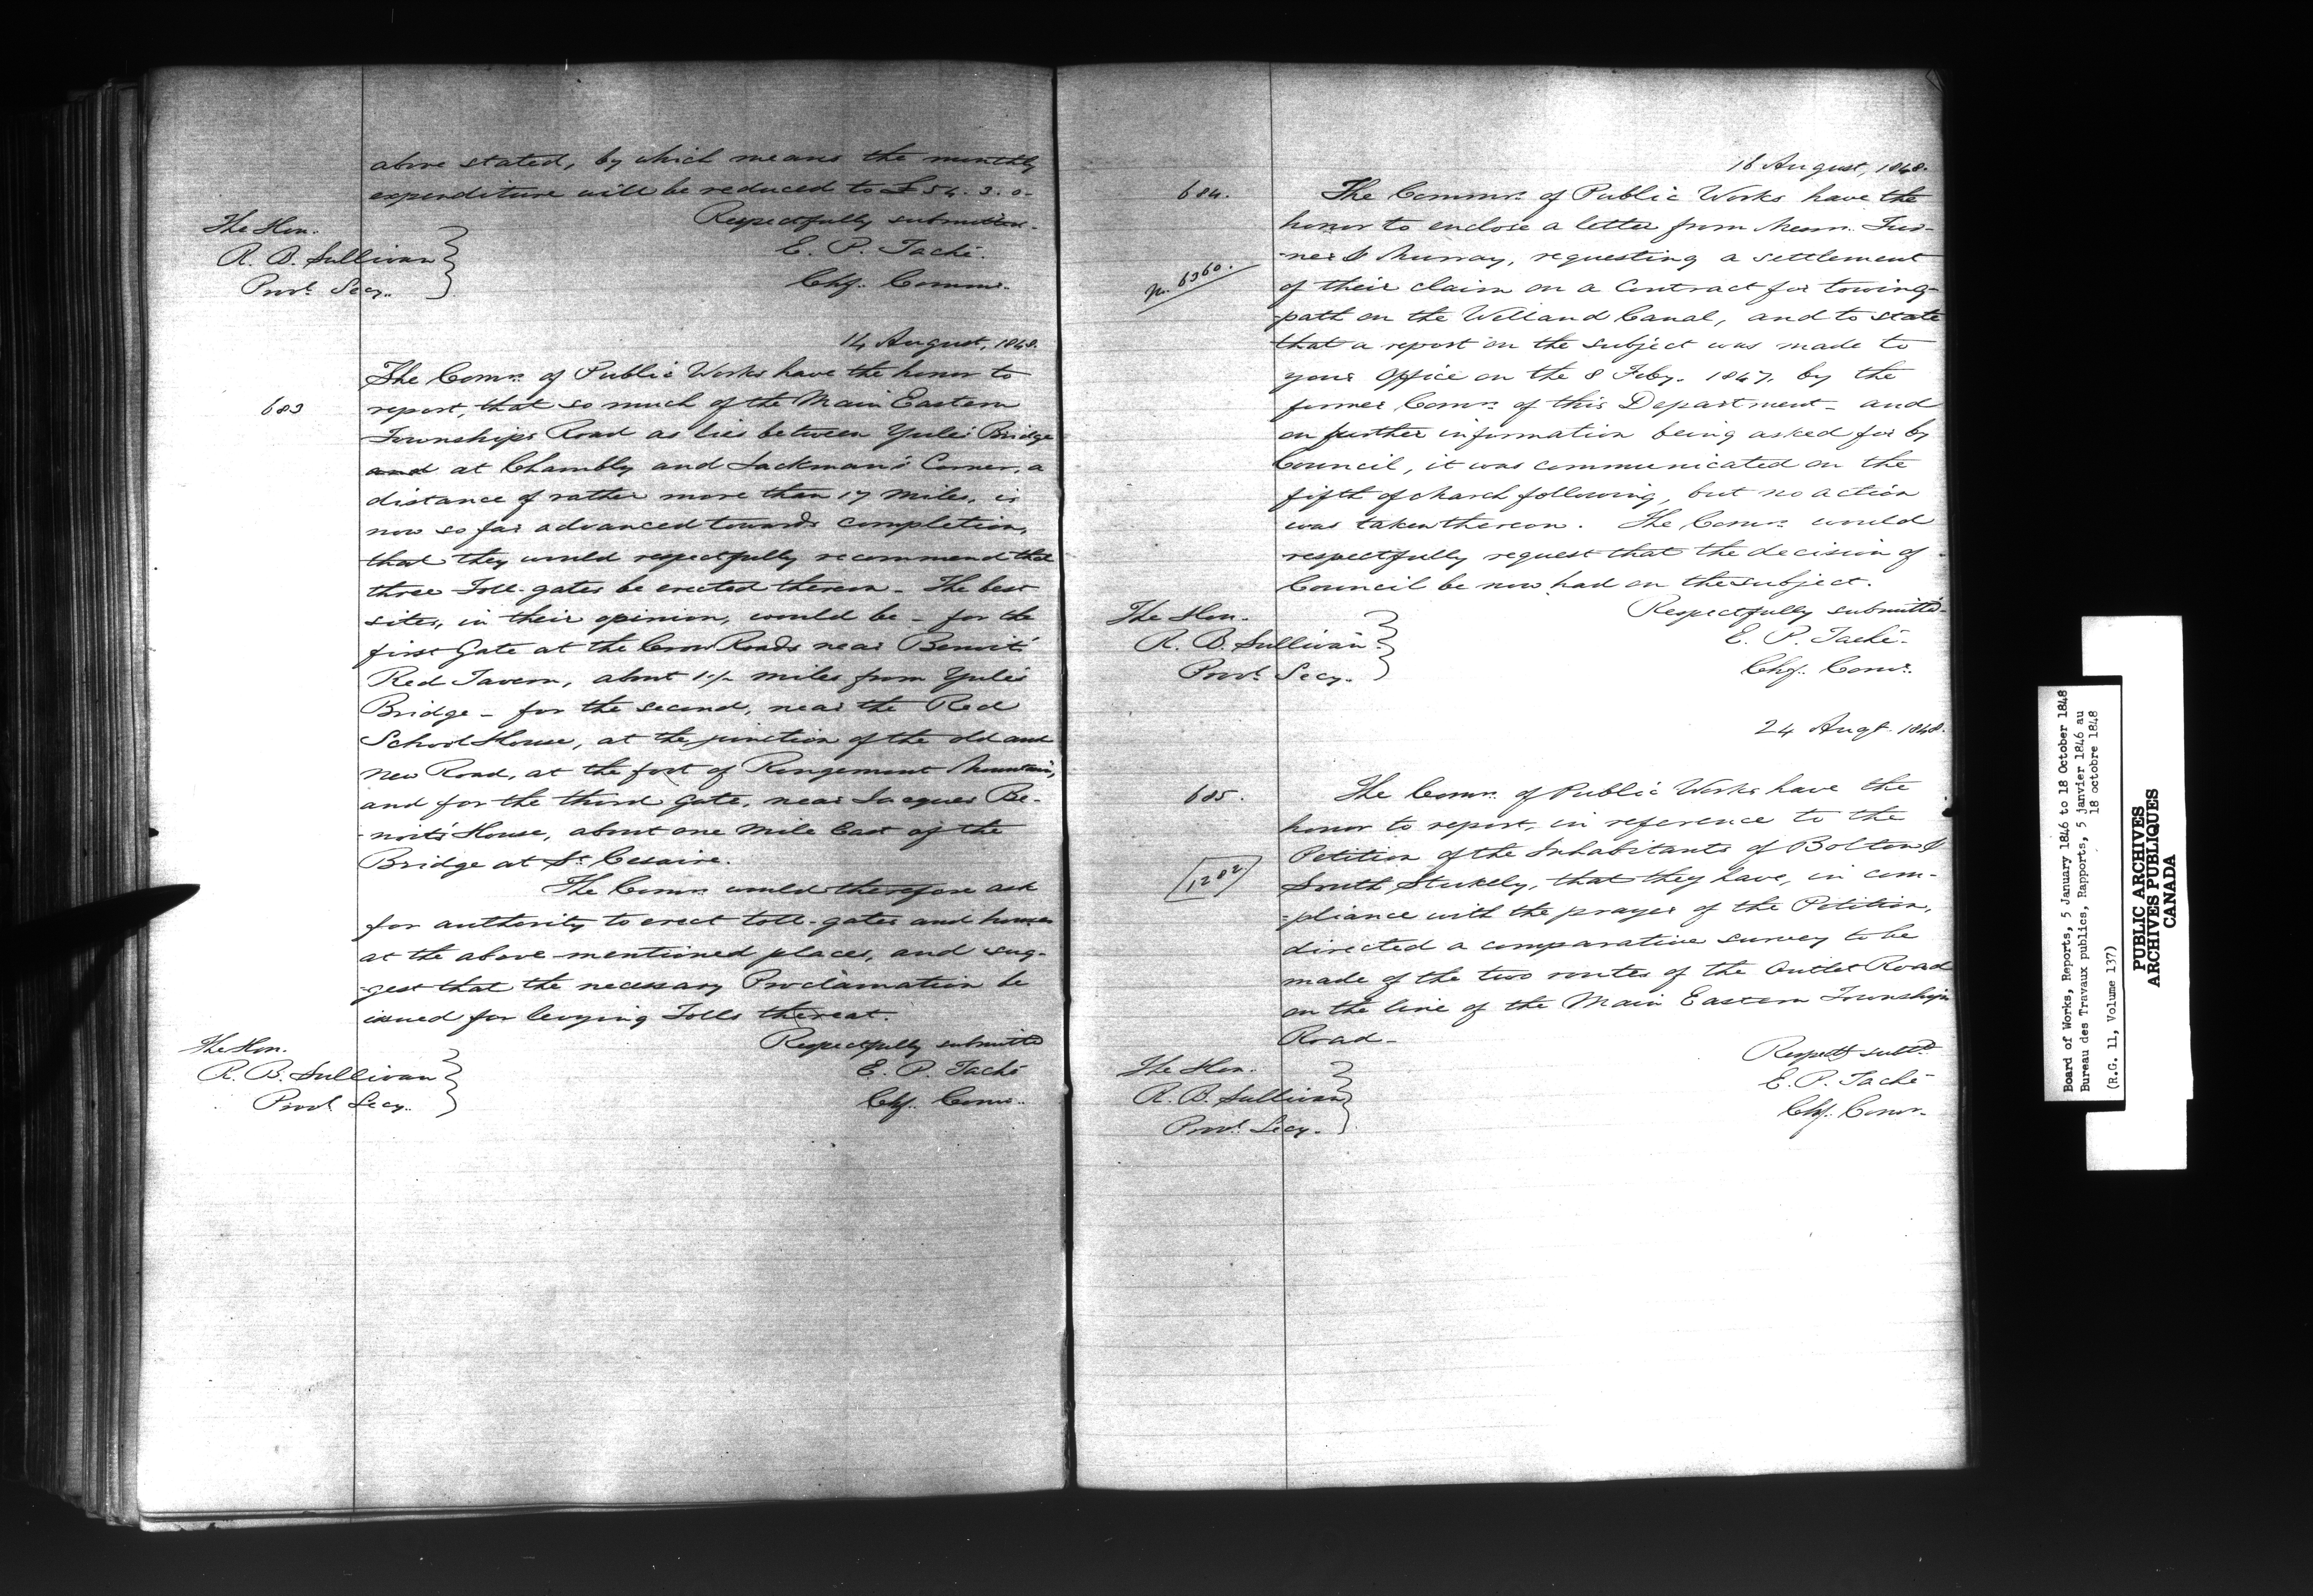 above stated, by which means the monthly
expenditure will be reduced to £54. 3. 0.
Respectfully submitted.
The Hon.
R. B. Sullivan
Provl. Secy.
E. P. Taché.
Chf. Commr.
14 August, 1848.
The Comrs. of Public Works have the honor to
683
report, that so much of the Main Eastern
Townships Road as lies between Yule's Bridge
and at Chambly and Jackman's Corner, a
distance of rather more than 17 miles, is
now so far advanced towards completion,
that they would respectfully recommend that
three Toll-gates be erected thereon - The best
sites, in their opinion, would be - for the
first Gate at the Cross Roads near Benoit's
Red Tavern, about 1½ miles from Yule's
Bridge - for the second, near the Red
School House, at the junction of the old and
new Road, at the foot of Rougemont Mountain,
and for the third Gate, near Jacques Be-
-noit's House, about one mile East of the
Bridge at St. Cesaire.
The Comrs. would therefore ask
for authority to erect toll-gates and houses
at the above-mentioned places, and sug-
-gest that the necessary Proclamation be
issued for levying Tolls thereat.
Respectfully submitted
The Hon.
R. B. Sullivan
Provl. Secy.
E. P. Taché
Chf. Comr.
August, 1848.
684.
The Commrs. of Public Works have the
honor to enclose a letter from Messrs. Tur-
-ner & Murray, requesting a settlement
6360.
of their claim on a Contract for towing-
-path on the Welland Canal, and to state
that a report on the subject was made to
your Office on the 8 Feby. 1847, by the
former Comrs. of this Department - and
on further information being asked for by
Council, it was communicated on the
fifth of March following, but no action
was taken thereon. The Comrs. would
respectfully request that the decision of
Council be now had on the subject.
Respectfully submitted
The Hon.
R. B. Sullivan
Provl. Secy.
E. P. Taché
Chf. Comr.
24 Augt. 1848.
685.
The Comrs. of Public Works have the
honor to report, in reference to the
Petition of the Inhabitants of Bolton &
1282
South Stukely, that they have, in com-
-pliance with the prayer of the Petition,
directed a comparative survey to be
made of the two routes of the Outlet Road
on the line of the Main Eastern Townships
Road -
Respectf. subtd.
The Hon.
R. B. Sullivan
Provl. Secy.
E. P. Taché
Chf. Comr.
Board of Works, Reports, 5 January 1846 to 18 October 1848
Bureau des Travaux publics, Rapports, 5 janvier 1846 au
18 octobre 1848
(R.G. 11, Volume 137)
PUBLIC ARCHIVES
ARCHIVES PUBLIQUES
CANADA